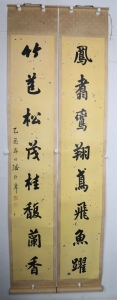 鳳翥鸞翔鳶飛魚躍
竹苞松茂桂馥蘭香
乙酉